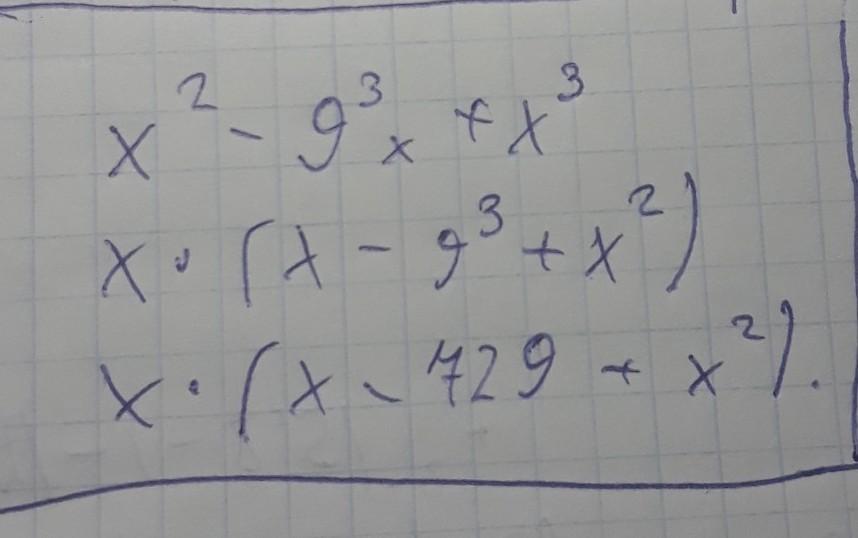 x² - 9³x + x³
x · (x - 9³ + x²)
x · (x - 729 + x²).